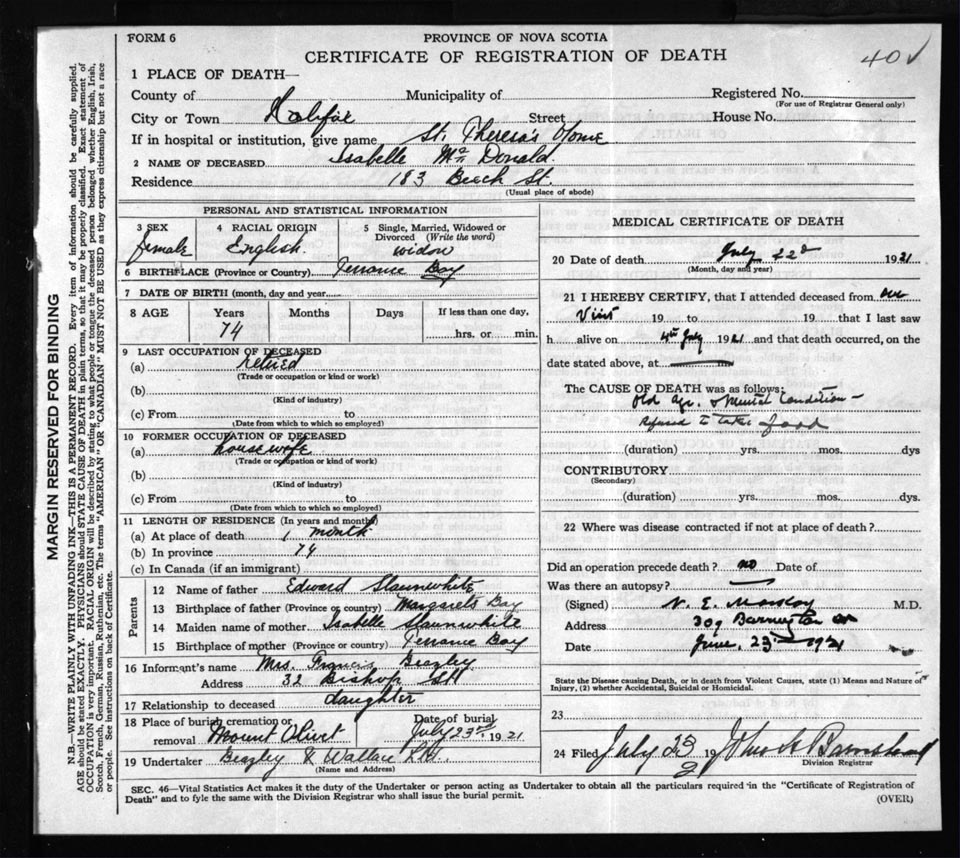 FORM 6
PROVINCE OF NOVA SCOTIA
CERTIFICATE OF REGISTRATION OF DEATH
40 ✓
1 PLACE OF DEATH—
County of Municipality of Registered No.
(For use of Registrar General only)
City or Town Halifax Street House No.
If in hospital or institution, give name St. Theresa's Home
2 NAME OF DECEASED Isabelle McDonald
Residence 183 Beech St.
(Usual place of abode)
PERSONAL AND STATISTICAL INFORMATION
3 SEX female
4 RACIAL ORIGIN English
5 Single, Married, Widowed or Divorced (Write the word) widow
6 BIRTHPLACE (Province or Country) Terrance Bay
7 DATE OF BIRTH (month, day and year)
8 AGE Years Months Days If less than one day,
74 hrs. or min.
9 LAST OCCUPATION OF DECEASED
(a) retired
(Trade or occupation or kind or work)
(b)
(Kind of industry)
(c) From to
(Date from which to which so employed)
10 FORMER OCCUPATION OF DECEASED
(a) housewife
(Trade or occupation or kind of work)
(b)
(Kind of industry)
(c) From to
(Date from which to which so employed)
11 LENGTH OF RESIDENCE (In years and months)
(a) At place of death 1 month
(b) In province 74
(c) In Canada (if an immigrant)
Parents
12 Name of father Edward Slaunwhite
13 Birthplace of father (Province or country) Margarets Bay
14 Maiden name of mother Isabelle Slaunwhite
15 Birthplace of mother (Province or country) Terrance Bay
16 Informant's name Mrs. Francis Beazley
Address 32 Bishop St
17 Relationship to deceased daughter
18 Place of burial cremation or removal Mount Olivet
Date of burial July 23rd 1921
19 Undertaker Beazley & Wallace Ltd.
(Name and Address)
MEDICAL CERTIFICATE OF DEATH
20 Date of death July 22d 1921
(Month, day and year)
21 I HEREBY CERTIFY, that I attended deceased from one
Visit 19 to 19 that I last saw
h alive on 4th July 1921 and that death occurred, on the
date stated above, at m
The CAUSE OF DEATH was as follows:
Old age. & Mental Condition—
refused to take food
(duration) yrs. mos. dys
CONTRIBUTORY
(Secondary)
(duration) yrs. mos. dys.
22 Where was disease contracted if not at place of death?
Did an operation precede death? no Date of
Was there an autopsy?
(Signed) M.D.
Address 309 Barrington St
Date June. 23rd 1921
State the Disease causing Death, or in death from Violent Causes, state (1) Means and Nature of
Injury, (2) whether Accidental, Suicidal or Homicidal.
23
24 Filed July 23 19
Division Registrar
SEC. 46—Vital Statistics Act makes it the duty of the Undertaker or person acting as Undertaker to obtain all the particulars required in the "Certificate of Registration of
Death" and to fyle the same with the Division Registrar who shall issue the burial permit.
(OVER)
MARGIN RESERVED FOR BINDING
N.B.—WRITE PLAINLY WITH UNFADING INK—THIS IS A PERMANENT RECORD. Every item of information should be carefully supplied.
AGE should be stated EXACTLY. PHYSICIANS should STATE CAUSE OF DEATH in plain terms, so that it may be properly classified. Exact statement of
OCCUPATION is very important. RACIAL ORIGIN will be described by stating to what people or tongue the deceased person belonged, whether English, Irish,
Scotch, French, German, Russian, Ruthenian, etc. The terms "AMERICAN" or "CANADIAN" MUST NOT BE USED as they express citizenship but not a race
or people. See instructions on back of Certificate.